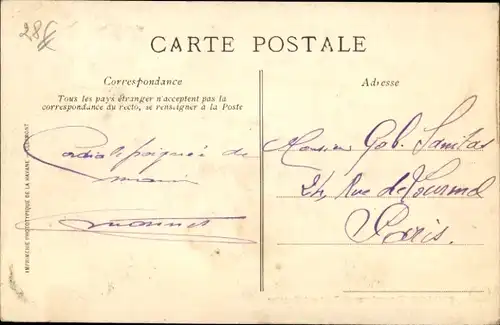 28
CARTE POSTALE
Correspondance
Tous les pays étranger n'acceptent pas la
correspondance du recto, se renseigner à la Poste
Cordiale poignée de
main
Adresse
Monsieur Gab.
24, Rue de
Paris.
IMPRIMERIE PHOTOTYPIQUE DE LA